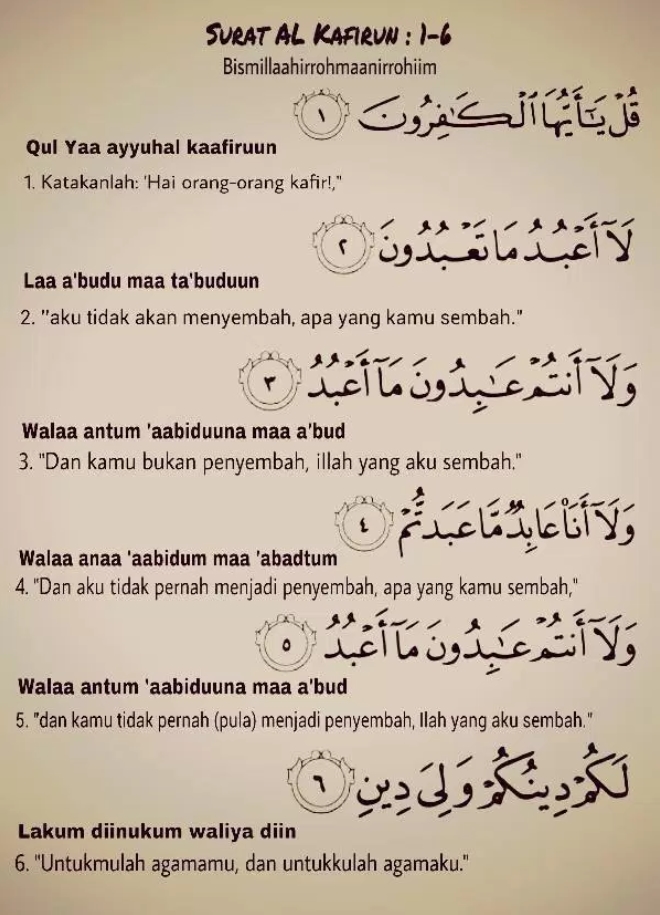 SURAT AL KAFIRUN : 1-6
Bismillaahirrohmaanirrohiim
قُلْ يَٰٓأَيُّهَا ٱلْكَٰفِرُونَ ١
Qul Yaa ayyuhal kaafiruun
1. Katakanlah: 'Hai orang-orang kafir!,"
لَآ أَعْبُدُ مَا تَعْبُدُونَ ٢
Laa a'budu maa ta'buduun
2. "aku tidak akan menyembah, apa yang kamu sembah."
وَلَآ أَنتُمْ عَٰبِدُونَ مَآ أَعْبُدُ ٣
Walaa antum 'aabiduuna maa a'bud
3. "Dan kamu bukan penyembah, illah yang aku sembah."
وَلَآ أَنَا۠ عَابِدٌ مَّا عَبَدتُّمْ ٤
Walaa anaa 'aabidum maa 'abadtum
4. "Dan aku tidak pernah menjadi penyembah, apa yang kamu sembah,"
وَلَآ أَنتُمْ عَٰبِدُونَ مَآ أَعْبُدُ ٥
Walaa antum 'aabiduuna maa a'bud
5. "dan kamu tidak pernah (pula) menjadi penyembah, Ilah yang aku sembah."
لَكُمْ دِينُكُمْ وَلِىَ دِينِ ٦
Lakum diinukum waliya diin
6. "Untukmulah agamamu, dan untukkulah agamaku."